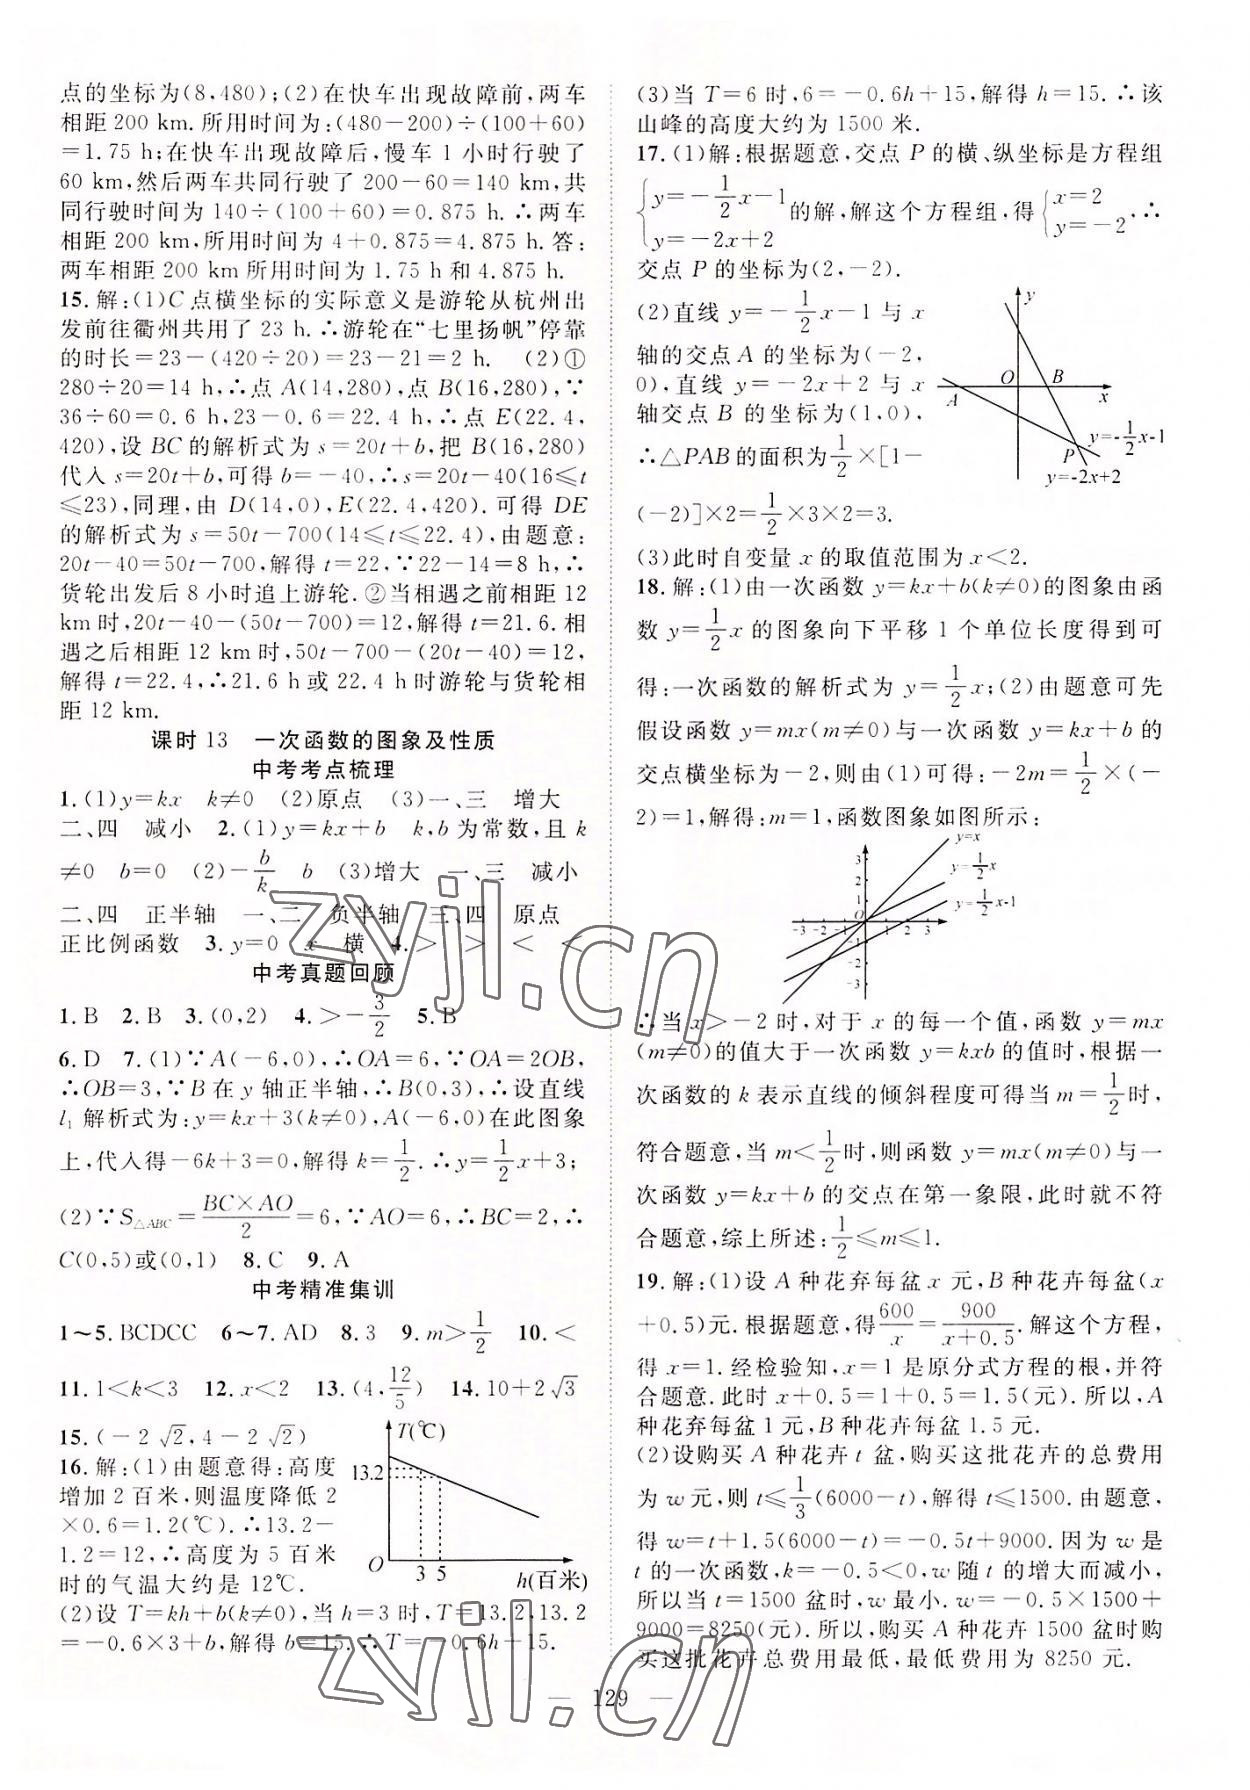 点的坐标为(8,480);(2)在快车出现故障前,两车
相距 200 km.所用时间为:(480－200)÷(100＋60)
＝1.75 h;在快车出现故障后,慢车 1 小时行驶了
60 km,然后两车共同行驶了 200－60＝140 km,共
同行驶时间为 140÷(100＋60)＝0.875 h.∴两车
相距 200 km,所用时间为 4＋0.875＝4.875 h.答:
两车相距 200 km 所用时间为 1.75 h 和 4.875 h.
15.解:(1)C 点横坐标的实际意义是游轮从杭州出
发前往衢州共用了 23 h.∴游轮在“七里扬帆”停靠
的时长＝23－(420÷20)＝23－21＝2 h. (2)①
280÷20＝14 h,∴点 A(14,280),点 B(16,280),∵
36÷60＝0.6 h,23－0.6＝22.4 h,∴点 E(22.4,
420),设 BC 的解析式为 s＝20t＋b,把 B(16,280)
代入 s＝20t＋b,可得 b＝－40,∴s＝20t－40(16≤t
≤23),同理,由 D(14,0),E(22.4,420).可得 DE
的解析式为 s＝50t－700(14≤t≤22.4),由题意:
20t－40＝50t－700,解得 t＝22,∵22－14＝8 h,∴
货轮出发后 8 小时追上游轮.②当相遇之前相距 12
km 时,20t－40－(50t－700)＝12,解得 t＝21.6.相
遇之后相距 12 km 时,50t－700－(20t－40)＝12,
解得 t＝22.4,∴21.6 h 或 22.4 h 时游轮与货轮相
距 12 km.
课时 13 一次函数的图象及性质
中考考点梳理
1.(1)y＝kx k≠0 (2)原点 (3)一、三 增大
二、四 减小 2.(1)y＝kx＋b k,b 为常数,且 k
≠0 b＝0 (2)－b/k b (3)增大 一、三 减小
二、四 正半轴 一、二 负半轴 三、四 原点
正比例函数 3.y＝0 x 横 4.＞ ＞ ＜ ＜
中考真题回顾
1.B 2.B 3.(0,2) 4.＞－3/2 5.B
6.D 7.(1)∵A(－6,0),∴OA＝6,∵OA＝2OB,
∴OB＝3,∵B 在 y 轴正半轴,∴B(0,3),∴设直线
l₁ 解析式为:y＝kx＋3(k≠0),A(－6,0)在此图象
上,代入得－6k＋3＝0,解得 k＝1/2.∴y＝1/2x＋3;
(2)∵S△ABC＝BC×AO/2＝6,∵AO＝6,∴BC＝2,∴
C(0,5)或(0,1) 8.C 9.A
中考精准集训
1～5.BCDCC 6～7.AD 8.3 9.m＞1/2 10.＜
11.1＜k＜3 12.x＜2 13.(4,12/5) 14.10＋2√3
15.(－2√2,4－2√2)
16.解:(1)由题意得:高度
增加 2 百米,则温度降低 2
×0.6＝1.2(℃).∴13.2－
1.2＝12,∴高度为 5 百米
时的气温大约是 12℃.
T(℃)
13.2
O
3 5
h(百米)
(2)设 T＝kh＋b(k≠0),当 h＝3 时,T＝13.2,13.2
＝－0.6×3＋b,解得 b＝15.∴T＝－0.6h＋15.
(3)当 T＝6 时,6＝－0.6h＋15,解得 h＝15.∴该
山峰的高度大约为 1500 米.
17.(1)解:根据题意,交点 P 的横、纵坐标是方程组
{y＝－1/2x－1 y＝－2x＋2 的解,解这个方程组,得{x＝2 y＝－2,∴
交点 P 的坐标为(2,－2).
(2)直线 y＝－1/2x－1 与 x
轴的交点 A 的坐标为(－2,
0),直线 y＝－2x＋2 与 x
轴交点 B 的坐标为(1,0),
∴△PAB 的面积为1/2×[1－
(－2)]×2＝1/2×3×2＝3.
y
O B
A x
P
y=-1/2x-1
y=-2x+2
(3)此时自变量 x 的取值范围为 x＜2.
18.解:(1)由一次函数 y＝kx＋b(k≠0)的图象由函
数 y＝1/2x 的图象向下平移 1 个单位长度得到可
得:一次函数的解析式为 y＝1/2x;(2)由题意可先
假设函数 y＝mx(m≠0)与一次函数 y＝kx＋b 的
交点横坐标为－2,则由(1)可得:－2m＝1/2×(－
2)＝1,解得:m＝1,函数图象如图所示:
y=x
y=1/2x
y=1/2x-1
3
2
1
O
-3 -2 -1 1 2 3
-1
-2
-3
∴当 x＞－2 时,对于 x 的每一个值,函数 y＝mx
(m≠0)的值大于一次函数 y＝kxb 的值时,根据一
次函数的 k 表示直线的倾斜程度可得当 m＝1/2时,
符合题意,当 m＜1/2时,则函数 y＝mx(m≠0)与一
次函数 y＝kx＋b 的交点在第一象限,此时就不符
合题意,综上所述:1/2≤m≤1.
19.解:(1)设 A 种花弃每盆 x 元,B 种花卉每盆(x
＋0.5)元.根据题意,得600/x＝900/(x＋0.5).解这个方程,
得 x＝1.经检验知,x＝1 是原分式方程的根,并符
合题意.此时 x＋0.5＝1＋0.5＝1.5(元).所以,A
种花弃每盆 1 元,B 种花卉每盆 1.5 元.
(2)设购买 A 种花卉 t 盆,购买这批花卉的总费用
为 w 元,则 t≤1/3(6000－t),解得 t≤1500.由题意,
得 w＝t＋1.5(6000－t)＝－0.5t＋9000.因为 w 是
t 的一次函数,k＝－0.5＜0,w 随 t 的增大而减小,
所以当 t＝1500 盆时,w 最小.w＝－0.5×1500＋
9000＝8250(元).所以,购买 A 种花卉 1500 盆时购
买这批花卉总费用最低,最低费用为 8250 元.
— 129 —
zyjl.cn
zyjl.cn